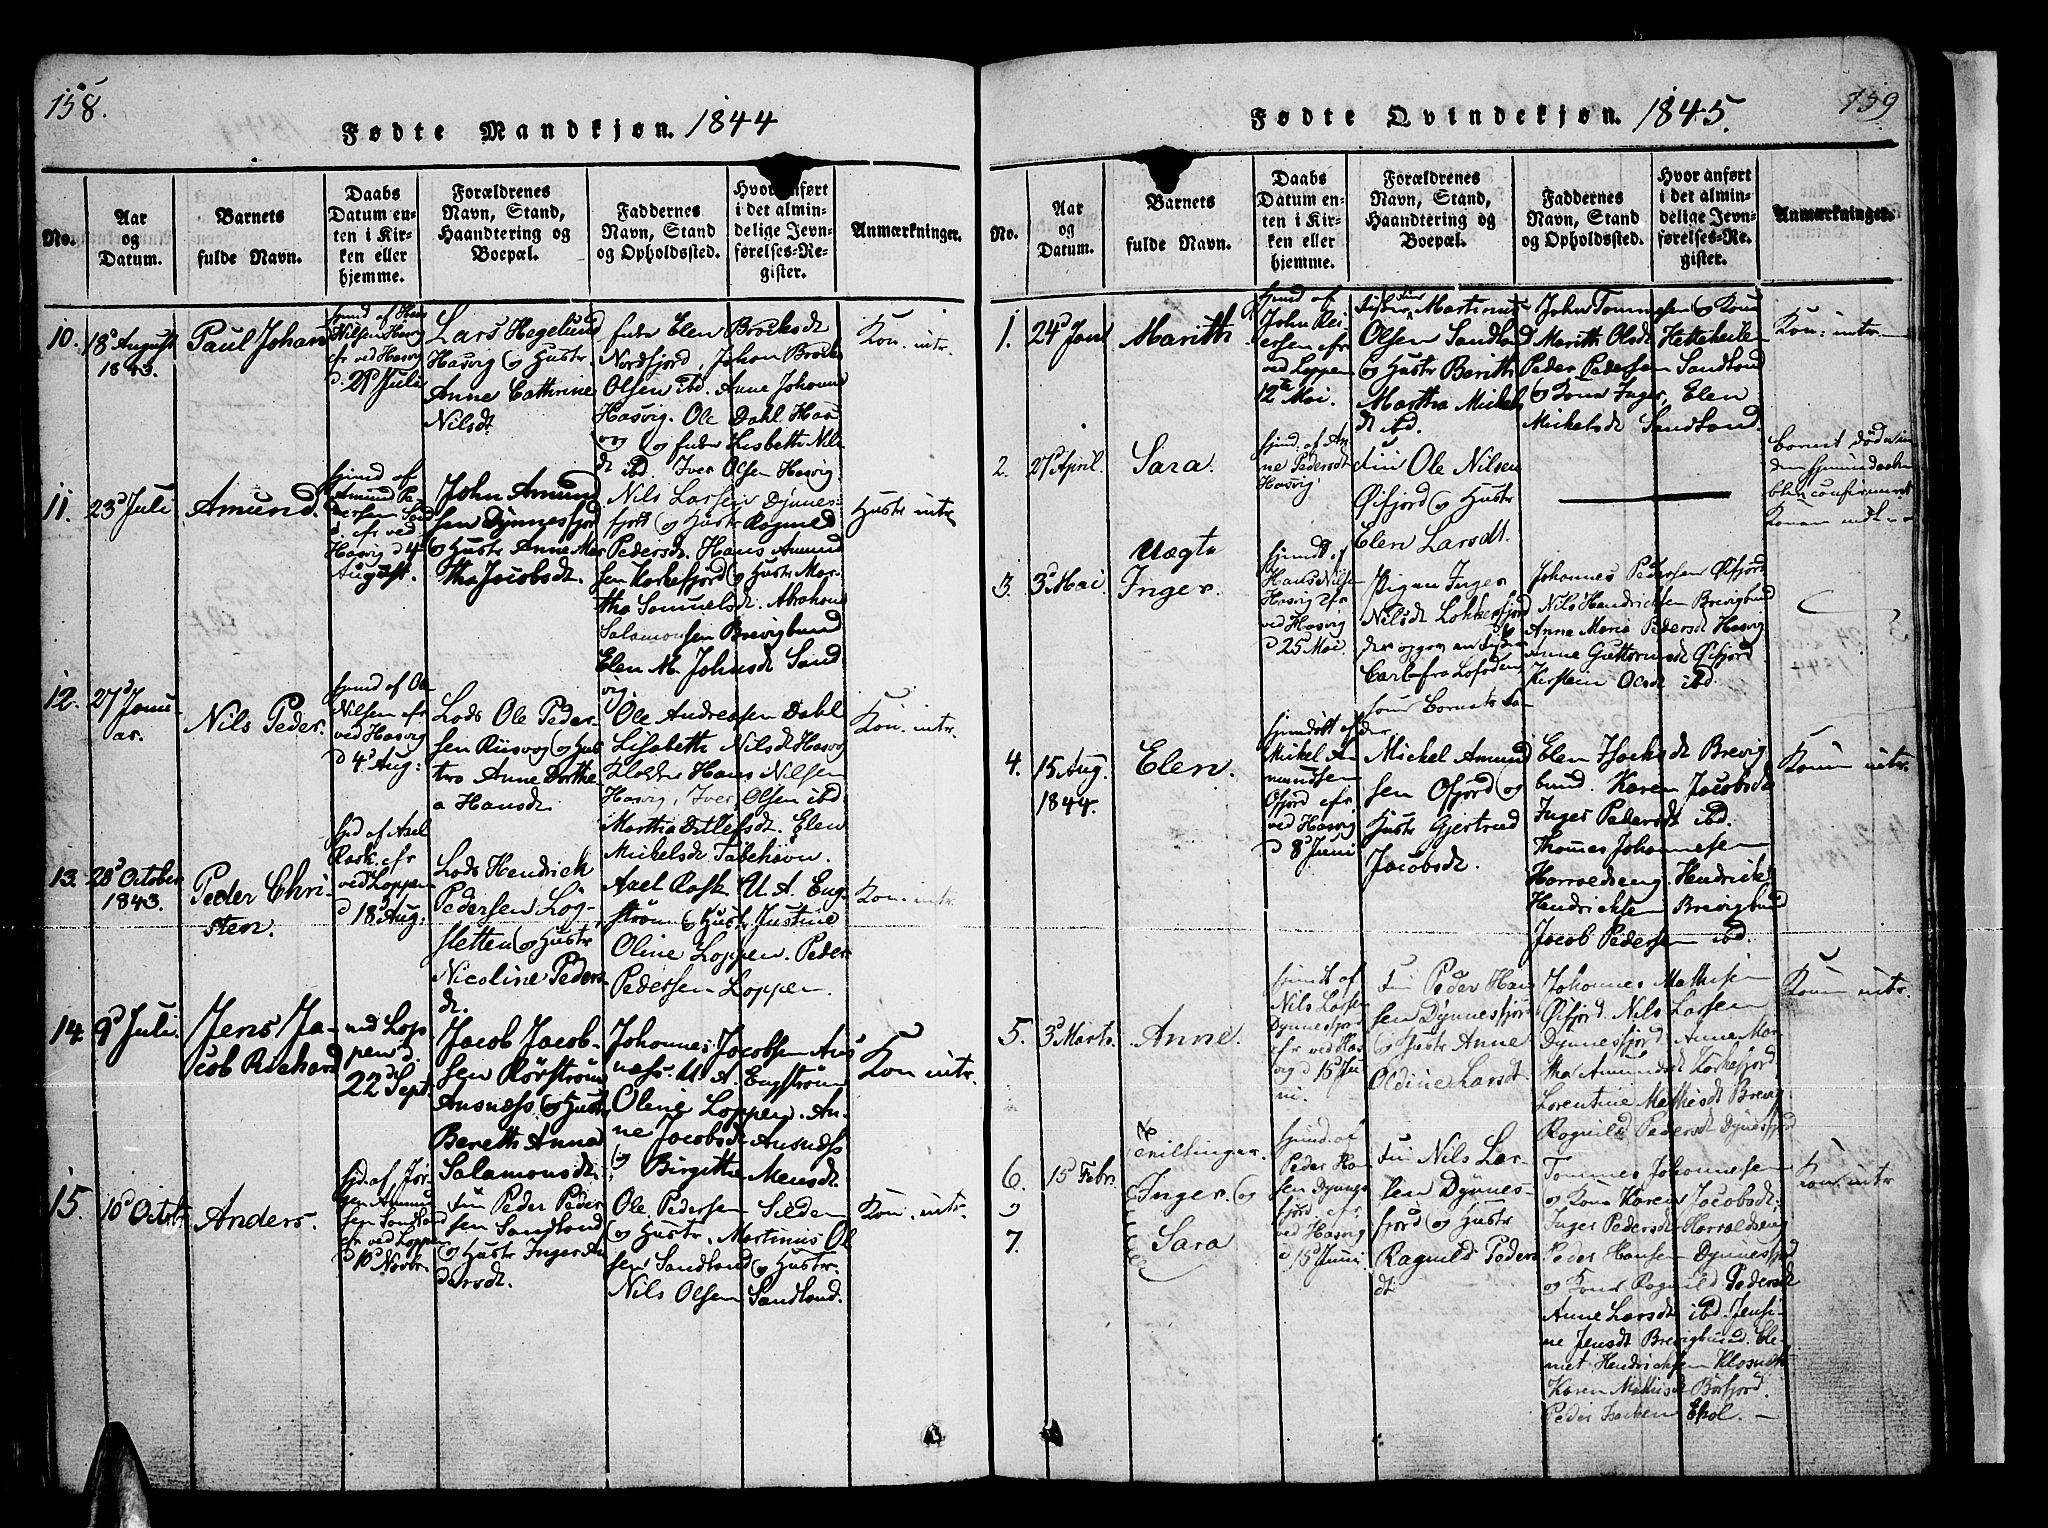 158.
Fødte Mandkjøn. 1844
No.
Aar
og
Datum.
Barnets
fulde Navn.
Daabs
Datum en-
ten i Kir-
ken eller
hjemme.
Forældrenes
Navn, Stand,
Haandtering og
Boepæl.
Faddernes
Navn, Stand
og Opholdssted.
Hvor anført
i det almin-
delige Jevn-
førelses-Re-
gister.
Anmærkninger.
10.
18d August
1843.
Paul Johan
hjmd af Hans
Nilsen Hasvig
cfr ved Hasvig
d. 21d Juli
Lars Hegelund
Hasvig og Hustr
Anne Cathrine
Nilsdt
Elen Brocksdt
Nordfjord Johan Brock
Olsen ibd. Anne Johann
Hasvig. Ole Dahl Has
vog og Lisbeth Nils
dt ibd. Iver Olsen Hasvig
Kon. intr.
11.
23d Juli
Amund.
hjmd af
Amund Pe-
dersen Sand
cfr ved
Hasvig d 4de
August.
John Amund
sen Dynnesfjord
og Hustr Anne Mar
tha Jacobsdt.
Nils Larsen Dynnes-
fjord og Hustr Ragnild
Pedersdt. Hans Amund
sen Korkefjord og Hustr Mar-
tha Samuelsdt. Abraham
Salamonsen Brevigbund
Elen M. Johnsdt Sand
vig.
Hustr intr
12.
27d Janu-
ar.
Nils Peder.
hjmd af Ole
Nilsen cfr
ved Hasvig
d 4d Aug:
Lods Ole Peder-
sen Riisvog og Hus
tro Anne Dorthe
a Hansdt.
Ole Andreasen Dahl
Lisabeth Nilsdt Hasvog
Hans Nilsen
Hasvig, Iver Olsen ibd
Martha Ditlefsdt. Elen
Mickelsdt Tabehavn.
Kon. intr.
13.
28d October
1843.
Peder Chri-
sten.
hjd af Axel
Rask. cfr
ved Loppen
d 18d Aug:
Lods Hendrick
Pedersen Løg-
sletten og Hustr
Nicoline Peders
dt.
Axel Rask U. A. Eng-
strøm og Hustr Justine
Oline Loppen. Peder
Pedersen Loppen.
Kon. intr.
14.
9d Juli.
Jens Ja-
cob Richard
ved Lop
pen d.
22d Sept.
Jacob Jacob-
sen Rørstrøm
Ausnæss og Hustr
Bereth Anne
Salamonsdt.
Johannes Jacobsen Aus
næss. U. A. Engstrøm
Oline Loppen. An-
ne Jacobsdt Ausnæss
og Birgitte Mensdt.
Kon intr.
15.
10d Octobr
Anders.
hjd. af Jør-
gen Amund
sen Sandland
cfr ved Loppen
d 10d Novbr.
Fin Peder Peder
sen Sandland
og Hustr Inger An
dersdt.
Ole Pedersen Silden
og Hustr. Martinus Ol
sen Sandland og Hustr.
Nils Olsen Sandland.
Kon. intr.
159
Fødte Qvindekjøn. 1845.
No.
Aar
og
Datum.
Barnets
fulde Navn.
Daabs
Datum en-
ten i Kir-
ken eller
hjemme.
Forældrenes
Navn, Stand,
Haandtering og
Boepæl.
Faddernes
Navn, Stand
og Opholdssted.
Hvor anført
i det almin-
delige Jevn-
førelses-Re-
gister.
Anmærkninger.
1.
24d Jan
Marith
hjmd af
John Rei
ersen cfr
ved Loppen
12te Mai.
Fin Martinus
Olsen Sandland
og Hustr Berith
Martha Mickels
dt ibd.
John Tommesen og Kone
Marith Olsdt
Peder Pedersen Sandland
og Kone Inger, Elen
Mickelsdt Sandland.
Kon: intr.
2.
27d April.
Sara.
hjmd. af An
ne Pedersdt
Hasvig
Fin Ole Nilsen
Øifjord og Hustr
Elen Larsdt.
barnet døde in
den hjmdaaben
blev confirmeret
Konen indl
3.
3d Mai
Uægte
Inger.
hjmdt. af
Hans Nilsen
Hasvig cfr
ved Hasvig
d 25 Mai
Pigen Inger
Nilsdt Lokkerfjord
der opgav en
Carl fra Lofoden
som Barnets Fa
der
Johannes Pedersen Øifjord
Nils Hendricksen Brevigbund
Anne Maria Pedersdt Hasvig
Anne Guttormsdt Øifjord
Kirsten Olsdt ibd.
4.
15 Aug.
1844.
Elen.
hjmdøbt af
Mickel A-
mundsen
Øfjord cfr.
ved Hasvig
d 8d Juni
Mickel Amund
sen Øfjord og
Hustr Gjertrud
Jacobsdt.
Elen Isacksdt Brevig
bund. Karen Jacobsdt
Inger Pedersdt ibd.
Thomes Johannesen
Harraldseng. Hendrick
Hendricksen Brevigbund
Jacob Pedersen ibd.
Konen intr.
5.
3d Marts.
Anne.
hjmdt af
Nils Larsen
Dynnesfjord
cfr ved Has
vog d 15d Ju
ni.
Fin Peder Han
sen Dynnesfjord
og Hustr Anne
Oldine Larsdt
Johannes Mathisen
Øifjord. Nils Larsen
Dynnesfjord. Anne Mar
tha Amundsdt Korkefjord
Lorentine Mathisdt Brevig
Ragnild Pedersdt Dynesfjord
Konen intr.
6.
og
7.
15d Febr.
Tvillinger.
Inger. og
Sara
hjmd. af
Peder Han
sen Dynnes
fjord. cfr.
ved Hasvig
d 15d Juni
Fin Nils Lar-
sen Dynnes-
fjord og Hustr
Ragnild Peders
dt
Tommes Johannesen
og Kone Karen Jacobsdt.
Inger Pedersdt Harraldseng
Peder Hansen Dynnesfjord
og Kone Ragnild Pedersdt
Anne Larsdt ibd. Jensi
ne Jensdt Brevigbund. Cle-
met Hendricksen
Karen Mathisdt Børfjord.
Peder Isacksen
Konen intr